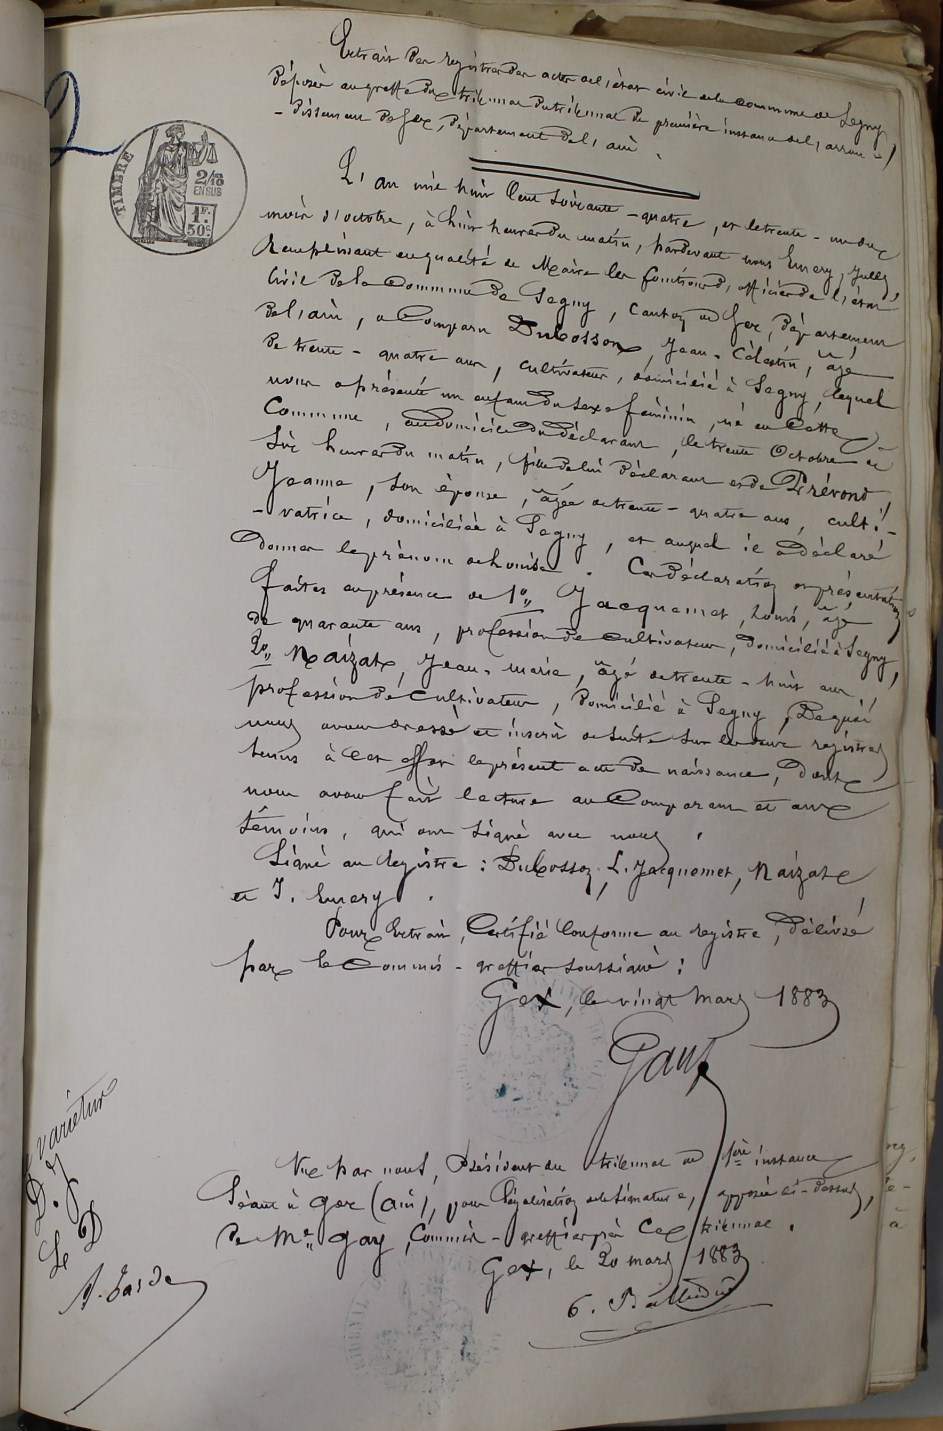 Extrait des registres des actes de l'état civil de la commune de Segny,
déposés au greffe du tribunal de première instance de l'arron-
-dissement de Gex, département de l'ain.
TIMBRE
2/10
EN SUS
1F.
50c
L'an mil huit cent soixante-quatre, et le trente-un du
mois d'octobre, à huit heures du matin, pardevant nous Emery, Jules,
Remplissant en qualité de Maire les fonctions d'officier de l'état
civil de la Commune de Segny, Canton de Gex, département
de l'ain, a Comparu Dubosson, Jean-Célestin, âgé
de trente-quatre ans, cultivateur, domicilié à Segny, lequel
nous a présenté un enfant du sexe féminin, né en Cette
Commune, au domicile du déclarant, le trente Octobre à
six heures du matin, fille de lui déclarant et de Prévond
Jeanne, son épouse, âgée de trente-quatre ans, culti-
-vatrice, domiciliée à Segny, et auquel il a déclaré
donner le prénom de Louise. Ces déclaration et présentation
faites en présence de 1o Jacquemet, Louis, âgé
de quarante ans, profession de cultivateur, domicilié à Segny,
2o Naizat, Jean-marie, âgé de trente-huit ans,
profession de cultivateur, domicilié à Segny, De quoi
nous avons dressé et inscrit de suite sur les deux registres
tenus à cet effet le présent acte de naissance, dont
nous avons fait lecture au Comparant et aux
témoins, qui ont signé avec nous.
Signé au Registre: Dubosson, L. Jacquemet, Naizat
et J. Emery.
Pour Extrait, Certifié Conforme au registre, délivré
par le Commis-greffier soussigné:
Gex, le vingt Mars 1883
Gay
Vu par nous, Président du tribunal de 1ère instance
séant à Gex (ain), pour légalisation de la signature, apposée ci-dessus,
de Me Gay, Commis-greffier près Ce tribunal.
Gex, le 20 mars 1883
varietur